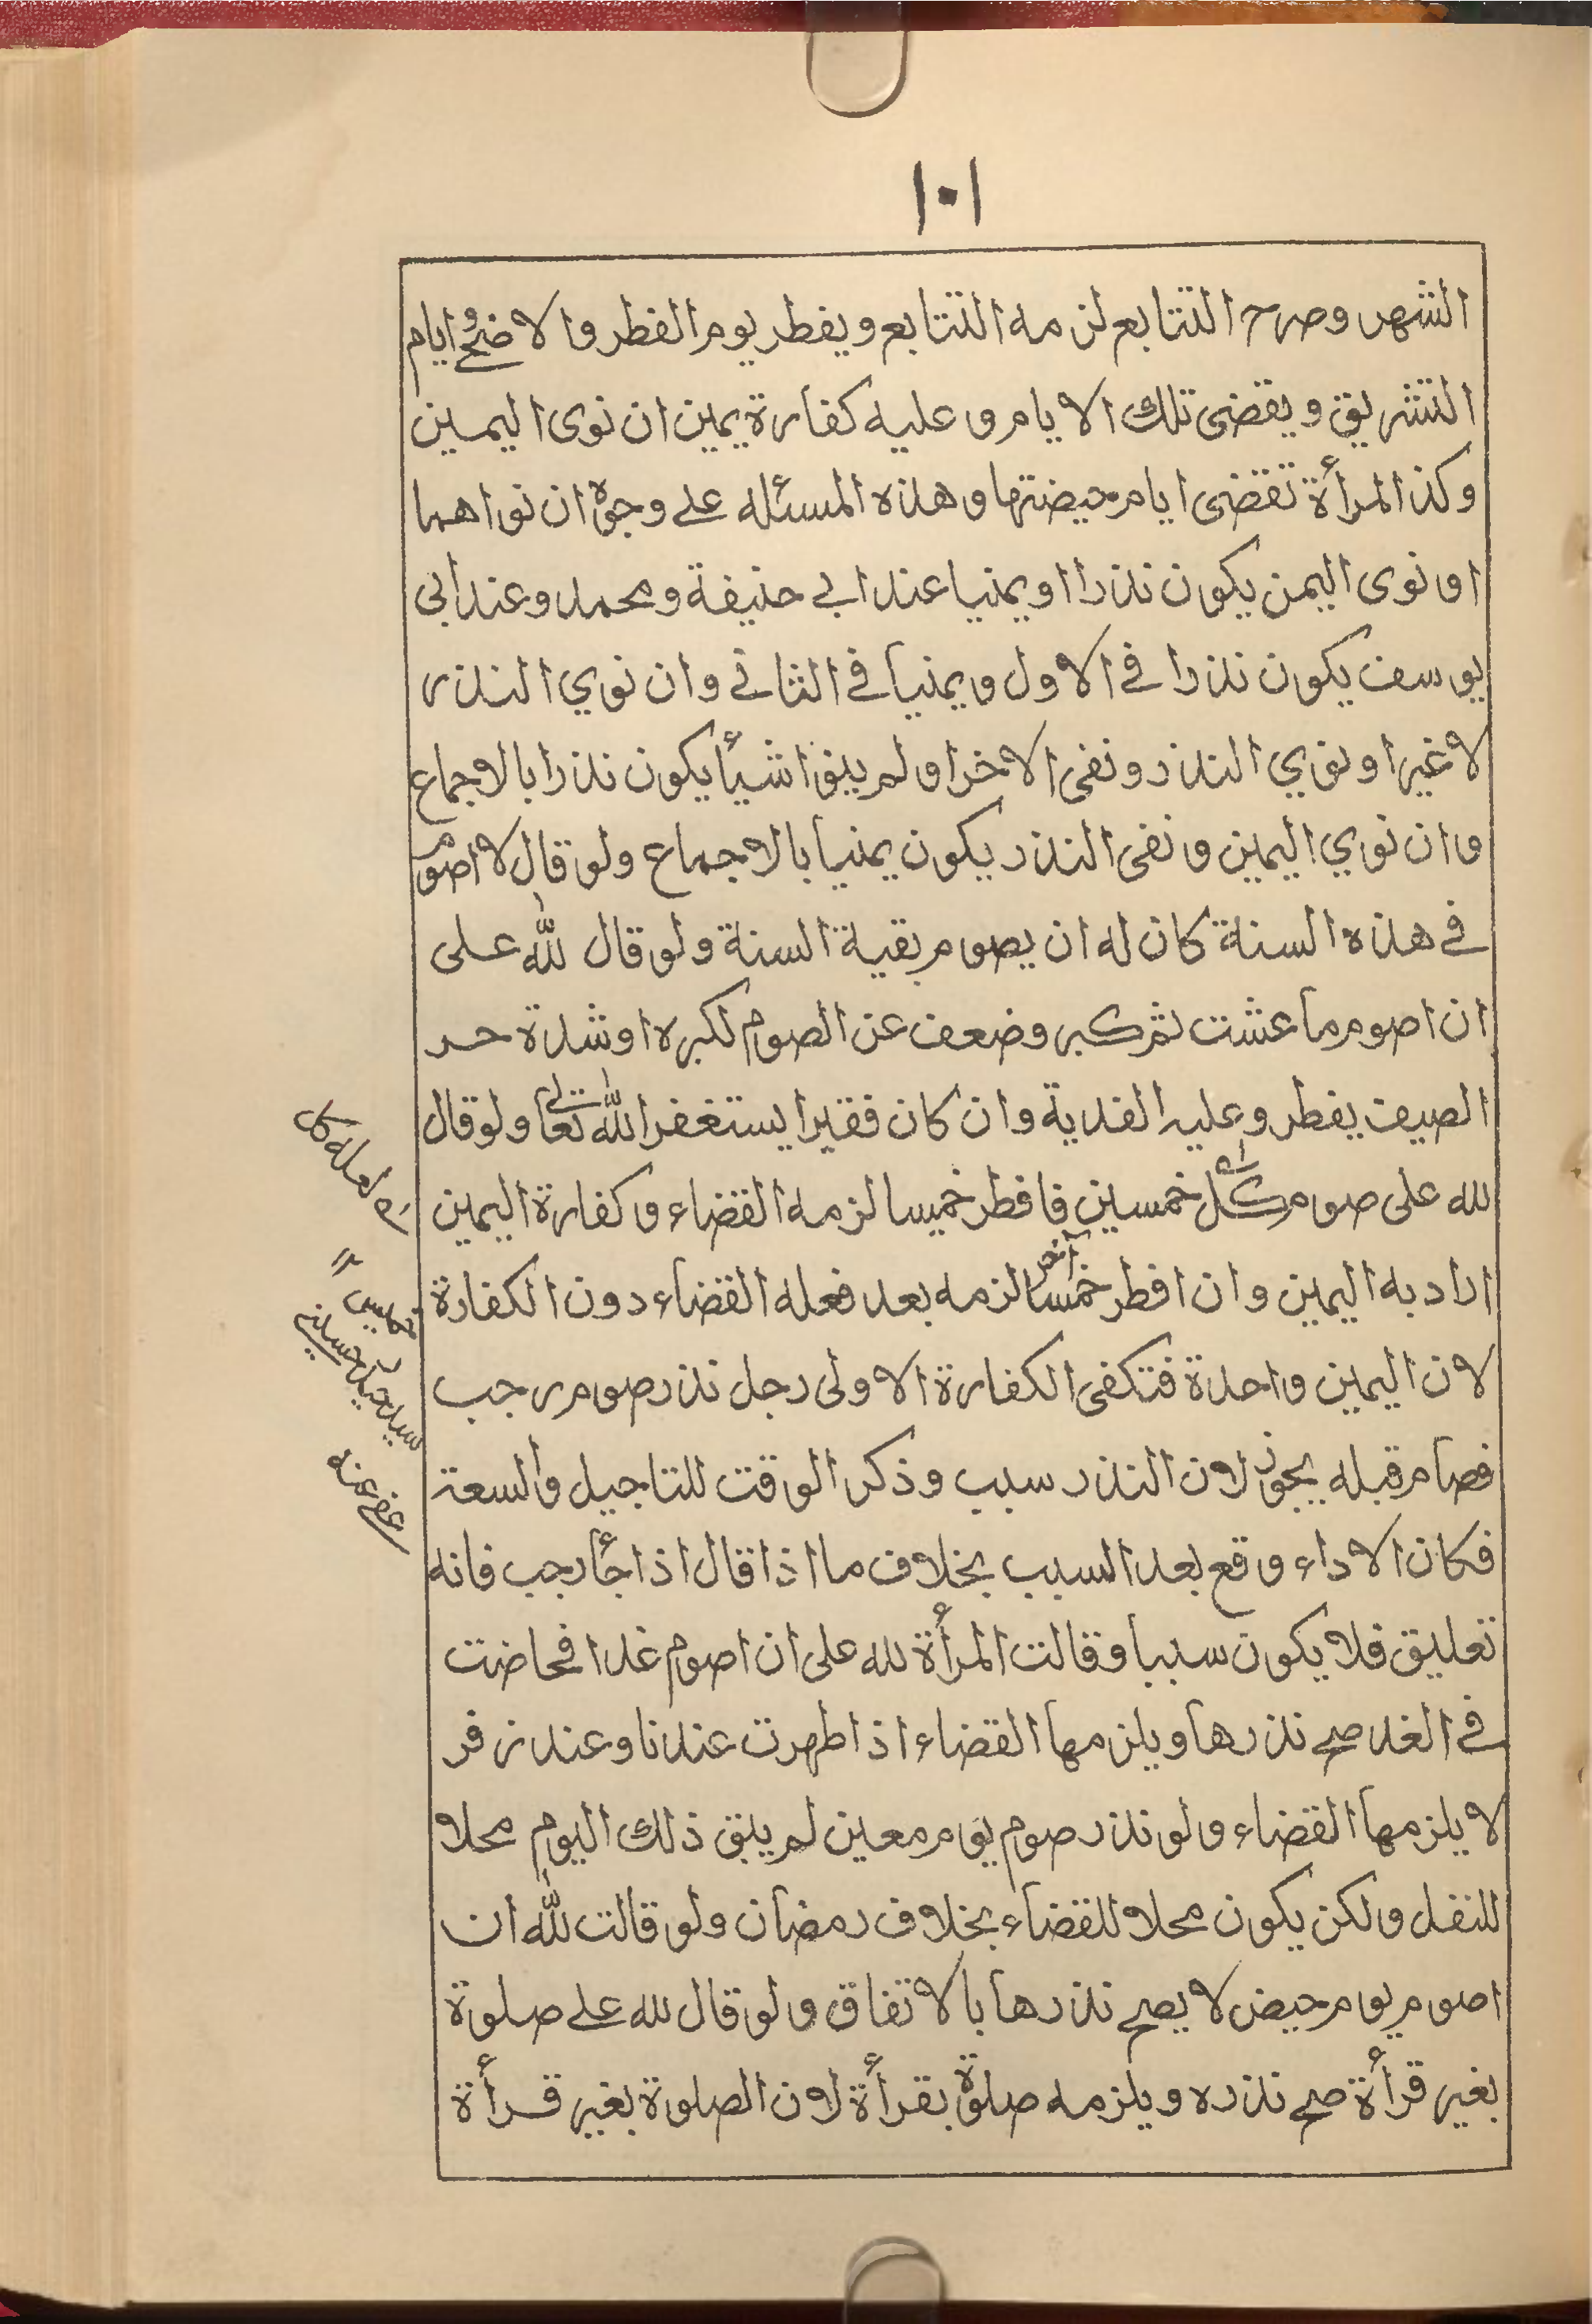 ١٠١
الشهر وصرح التتابع لزمه التتابع ويفطر يوم الفطر والاضحى وايام
التشريق ويقضى تلك الايام وعليه كفارة يمين ان نوى اليمين
وكذا المرأة تقضى ايام حيضتها وهذه المسئله على وجوه ان نواهما
او نوى اليمن يكون نذرا او يمنيا عند ابي حنيفة ومحمد وعند ابى
يوسف يكون نذرا فى الاول ويمنيا فى الثانى وان نوي النذر
لاغير او نوي النذر ونفى الاخر او لم ينوا شيأ يكون نذرا بالاجماع
وان نوي اليمين ونفى النذر يكون يمنيا بالاجماع ولو قال لا اصوم
فى هذه السنة كان له ان يصوم بقية السنة ولو قال لله على
ان اصوم ما عشت ثم كبر وضعف عن الصوم لكبره او شدة حر
الصيف يفطر وعليه الفدية وان كان فقيرا يستغفر الله تعالى ولو قال
لله على صوم كل خمسين فافطر خميسا لزمه القضاء وكفارة اليمين
اراد به اليمين وان افطر خمسا آخر لزمه بعد فعله القضاء دون الكفارة
لان اليمين واحدة فتكفى الكفارة الاولى رجل نذر صوم رجب
فصام قبله يجوز لان النذر سبب وذكر الوقت للتاجيل والسعة
فكان الاداء وقع بعد السبب بخلاف ما اذا قال اذا جأ رجب فانه
تعليق فلا يكون سببا وقالت المرأة لله على ان اصوم غدا فحاضت
فى الغد صح نذرها ويلزمها القضاء اذا طهرت عندنا وعند زفر
لا يلزمها القضاء ولو نذر صوم يوم معين لم يبق ذلك اليوم محلا
للنفل ولكن يكون محلا للقضاء بخلاف رمضان ولو قالت لله ان
اصوم يوم حيض لا يصح نذرها بالاتفاق ولو قال لله على صلوة
بغير قرأة صح نذره ويلزمه صلوة بقرأة لان الصلوة بغير قرأة
لعله كل
خميس ١٢
عفى عنه